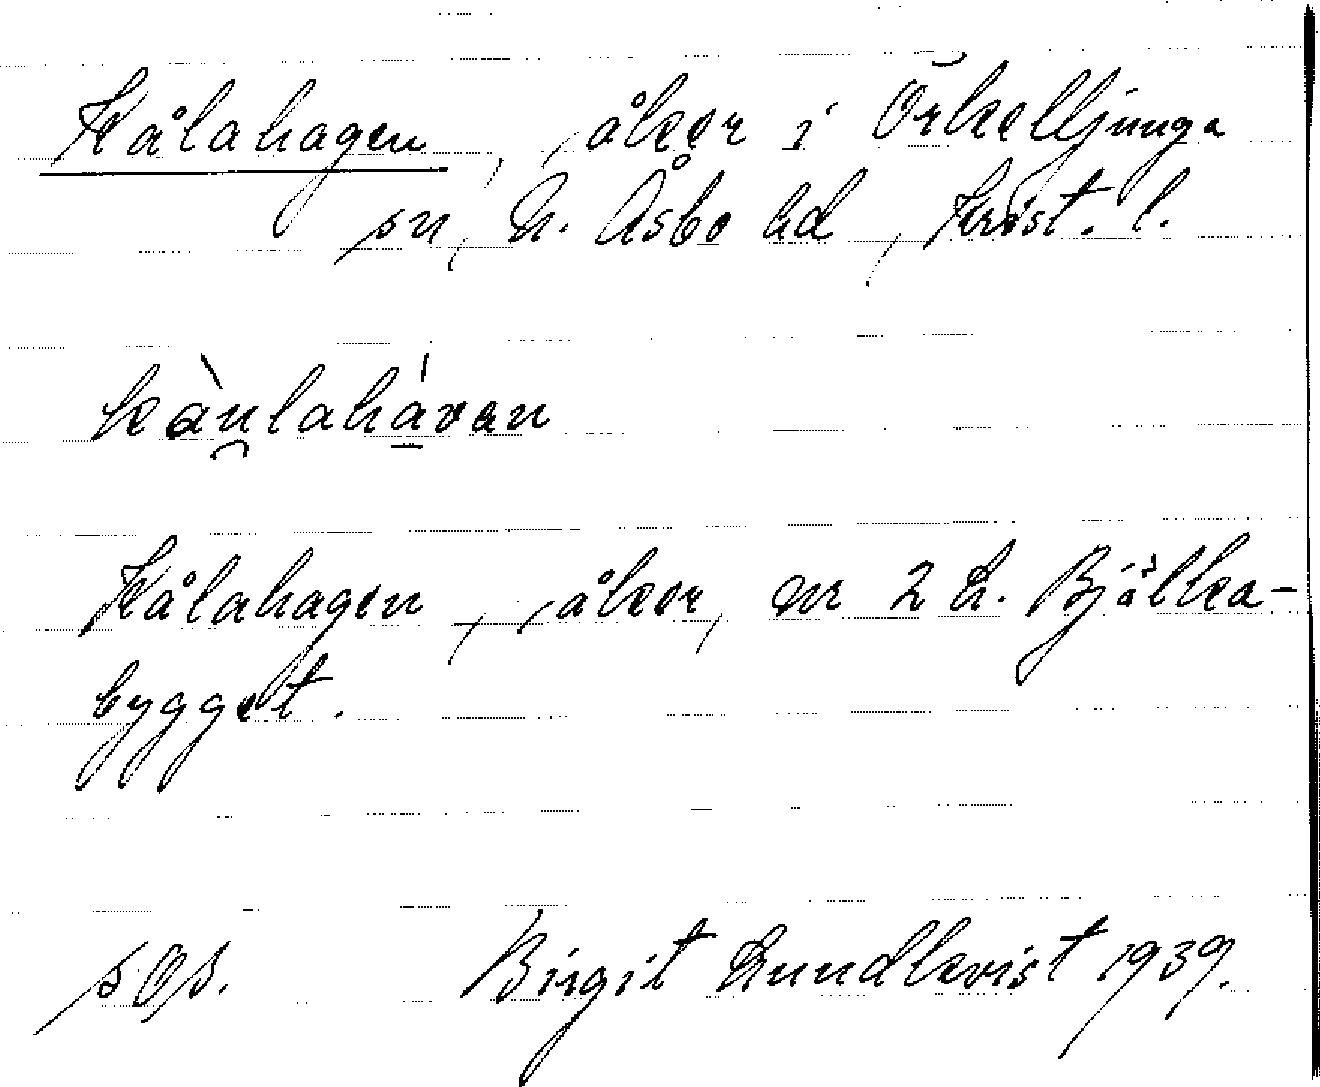 Kålahagen, åker i Örkelljunga
sn, N. Åsbo hd, Krist. l.
kàulahávan
Kålahagen, åker, nr 2 L. Bjälka-
bygget.
sOs. Birgit Lundkvist 1939.